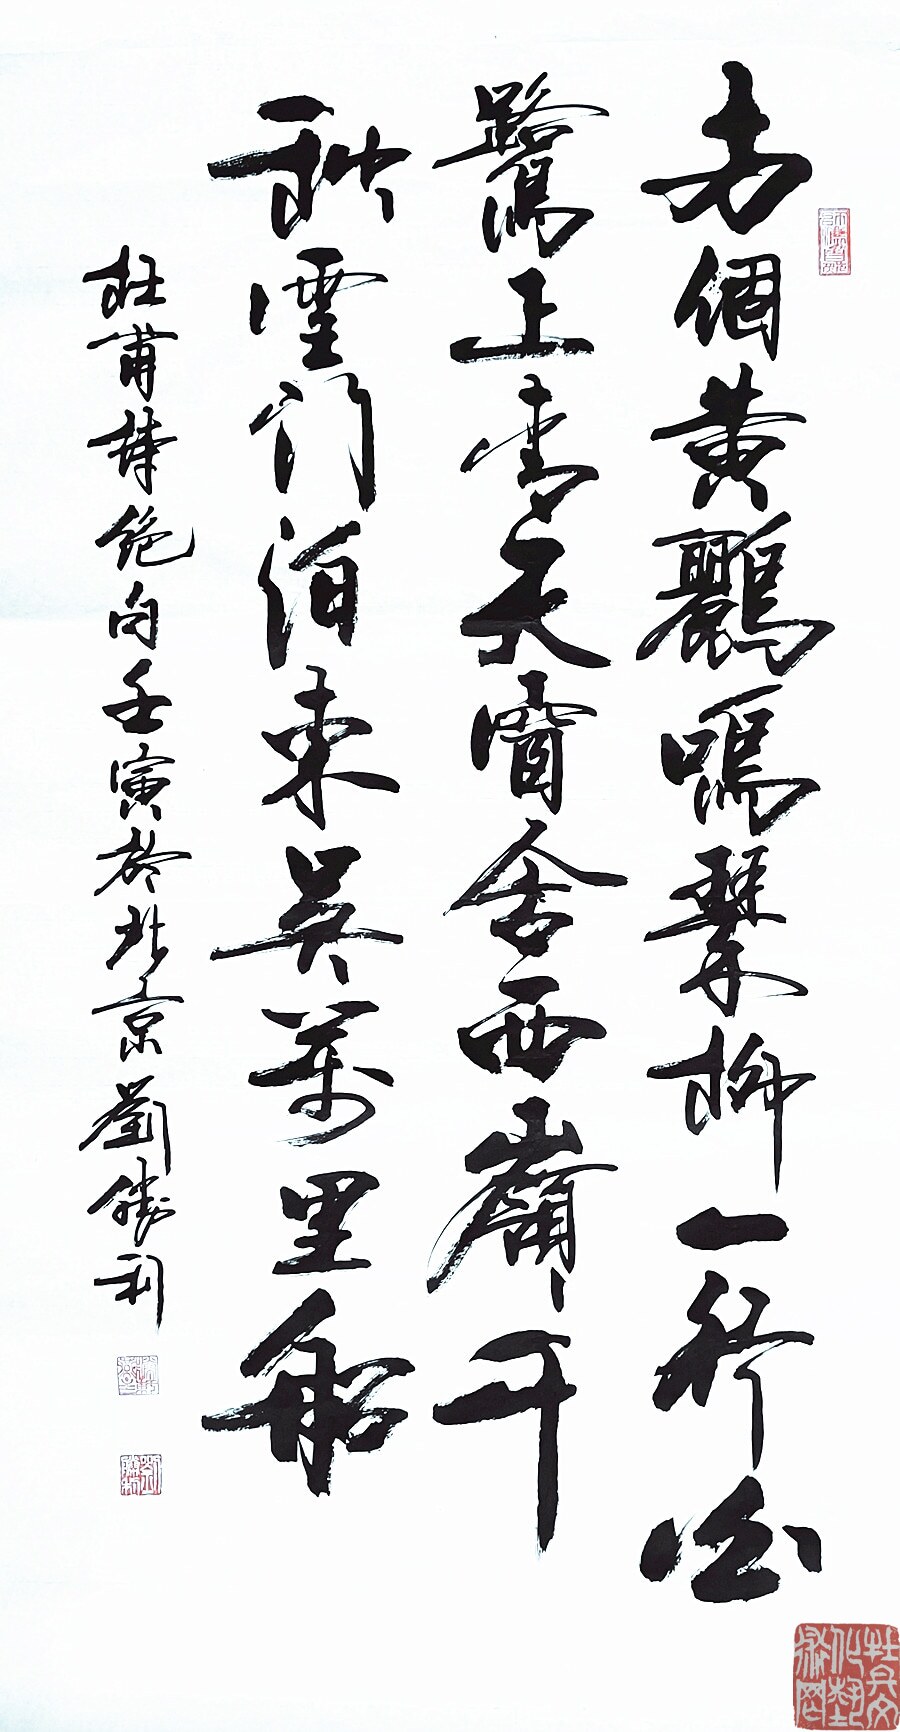 两個黃鸝鳴翠柳一行白
鷺上青天窗含西嶺千
秋雪门泊東吳萬里船
杜甫詩絕句壬寅於北京劉勝利